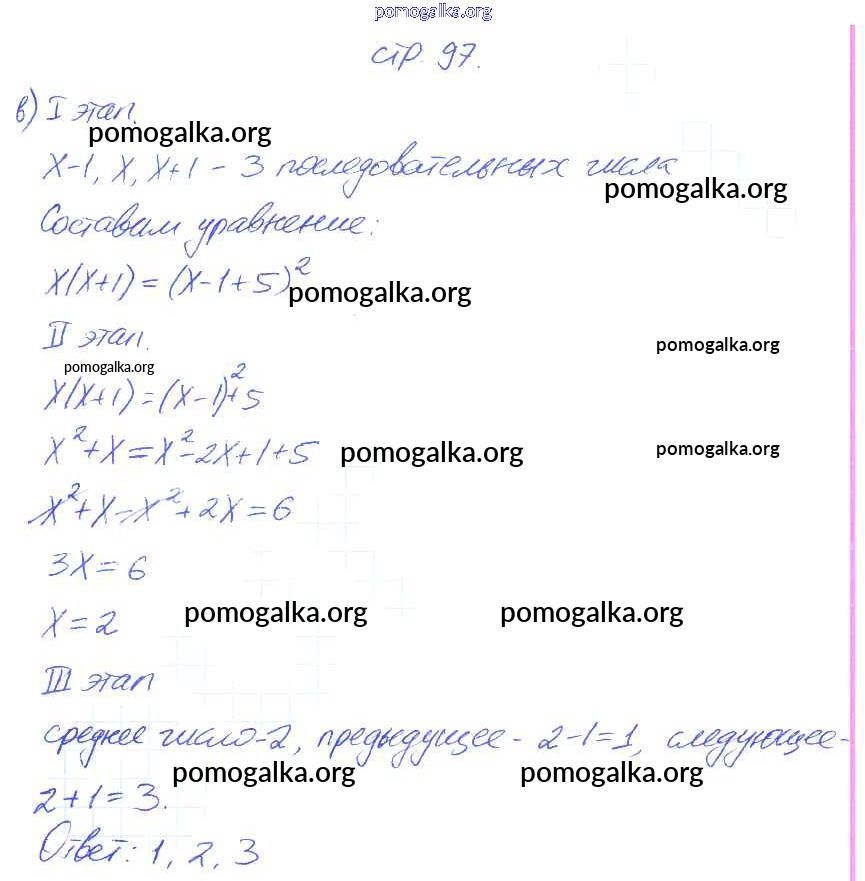 pomogalka.org
стр. 97.
в) I этап.
pomogalka.org
x-1, x, x+1 - 3 последовательных числа
pomogalka.org
Составим уравнение:
x(x+1) = (x-1+5)²
pomogalka.org
II этап.
pomogalka.org
pomogalka.org
x(x+1) = (x-1)²+5
x²+x=x²-2x+1+5
pomogalka.org
pomogalka.org
x²+x-x²+2x=6
3x=6
x=2
pomogalka.org
pomogalka.org
III этап
среднее число-2, предыдущее- 2-1=1, следующее-
pomogalka.org
pomogalka.org
2+1=3.
Ответ: 1, 2, 3